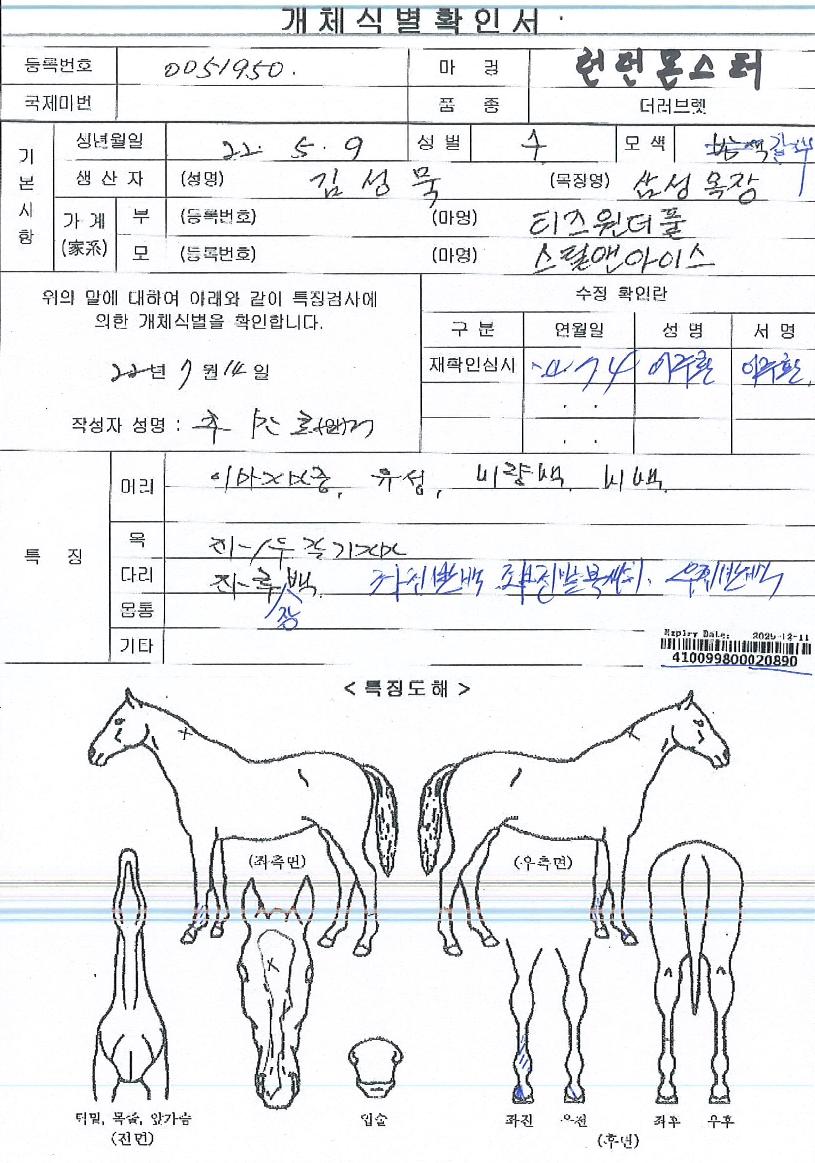 개체식별확인서
등록번호 0051950. 마 명 런던몬스터
국제마번 품 종 더러브렛
기본사항
생년월일 22. 5. 9 성 별 수 모 색
생 산 자 (성명) 김성묵 (목장명) 삼성목장
가 계 (家系) 부 (등록번호) (마명) 티즈원더풀
모 (등록번호) (마명) 스틸앤아이스
위의 말에 대하여 아래와 같이 특징검사에
의한 개체식별을 확인합니다.
22년 7월 14일
작성자 성명 :
수정 확인란
구 분 연월일 성 명 서 명
재확인심사
특 징
머리 이마자모중, 유성, 비량백, 비백
목
다리
몸통
기타
Expiry Date: 2025-12-11
410099800020890
< 특징도해 >
(좌측면) (우측면)
턱밑, 목줄, 앞가슴 입술 좌전 우전 좌후 우후
(전면) (후면)